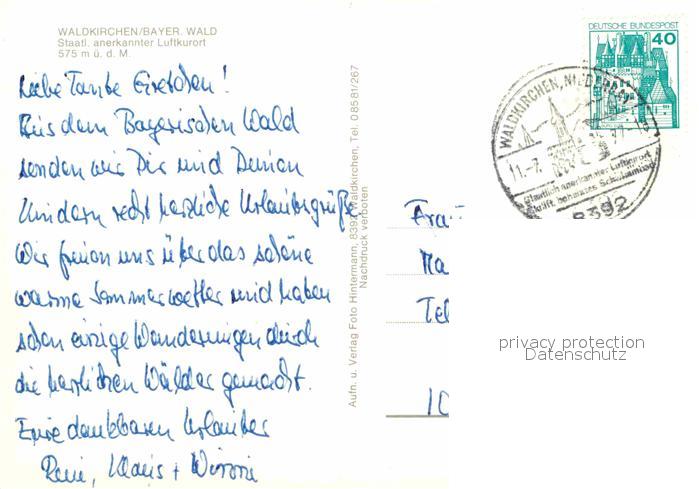 WALDKIRCHEN/BAYER. WALD
Staatl. anerkannter Luftkurort
575 m ü. d. M.
Liebe Tante Gretchen!
Aus dem Bayerischen Wald
senden wir Dir und Deinen
Kindern recht herzliche Urlaubsgrüße
Wir freuen uns über das schöne
warme Sommerwetter und haben
schon einige Wanderungen durch
die herrlichen Wälder gemacht.
Eure dankbaren Urlauber
Klaus +
Aufn. u. Verlag Foto Hintermann, 8392 Waldkirchen, Tel. 08581/267
Nachdruck verboten
DEUTSCHE BUNDESPOST
40
WALDKIRCHEN, NIEDERBAY
11.-7.
Staatlich anerkannter Luftkurort
beheiztes Schwimmbad
8392
Frau
Ma
Tel
10
privacy protection
Datenschutz